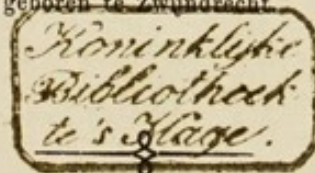 geboren te Zwijndrecht.
Koninklijke
Bibliotheek
te 's Hage.